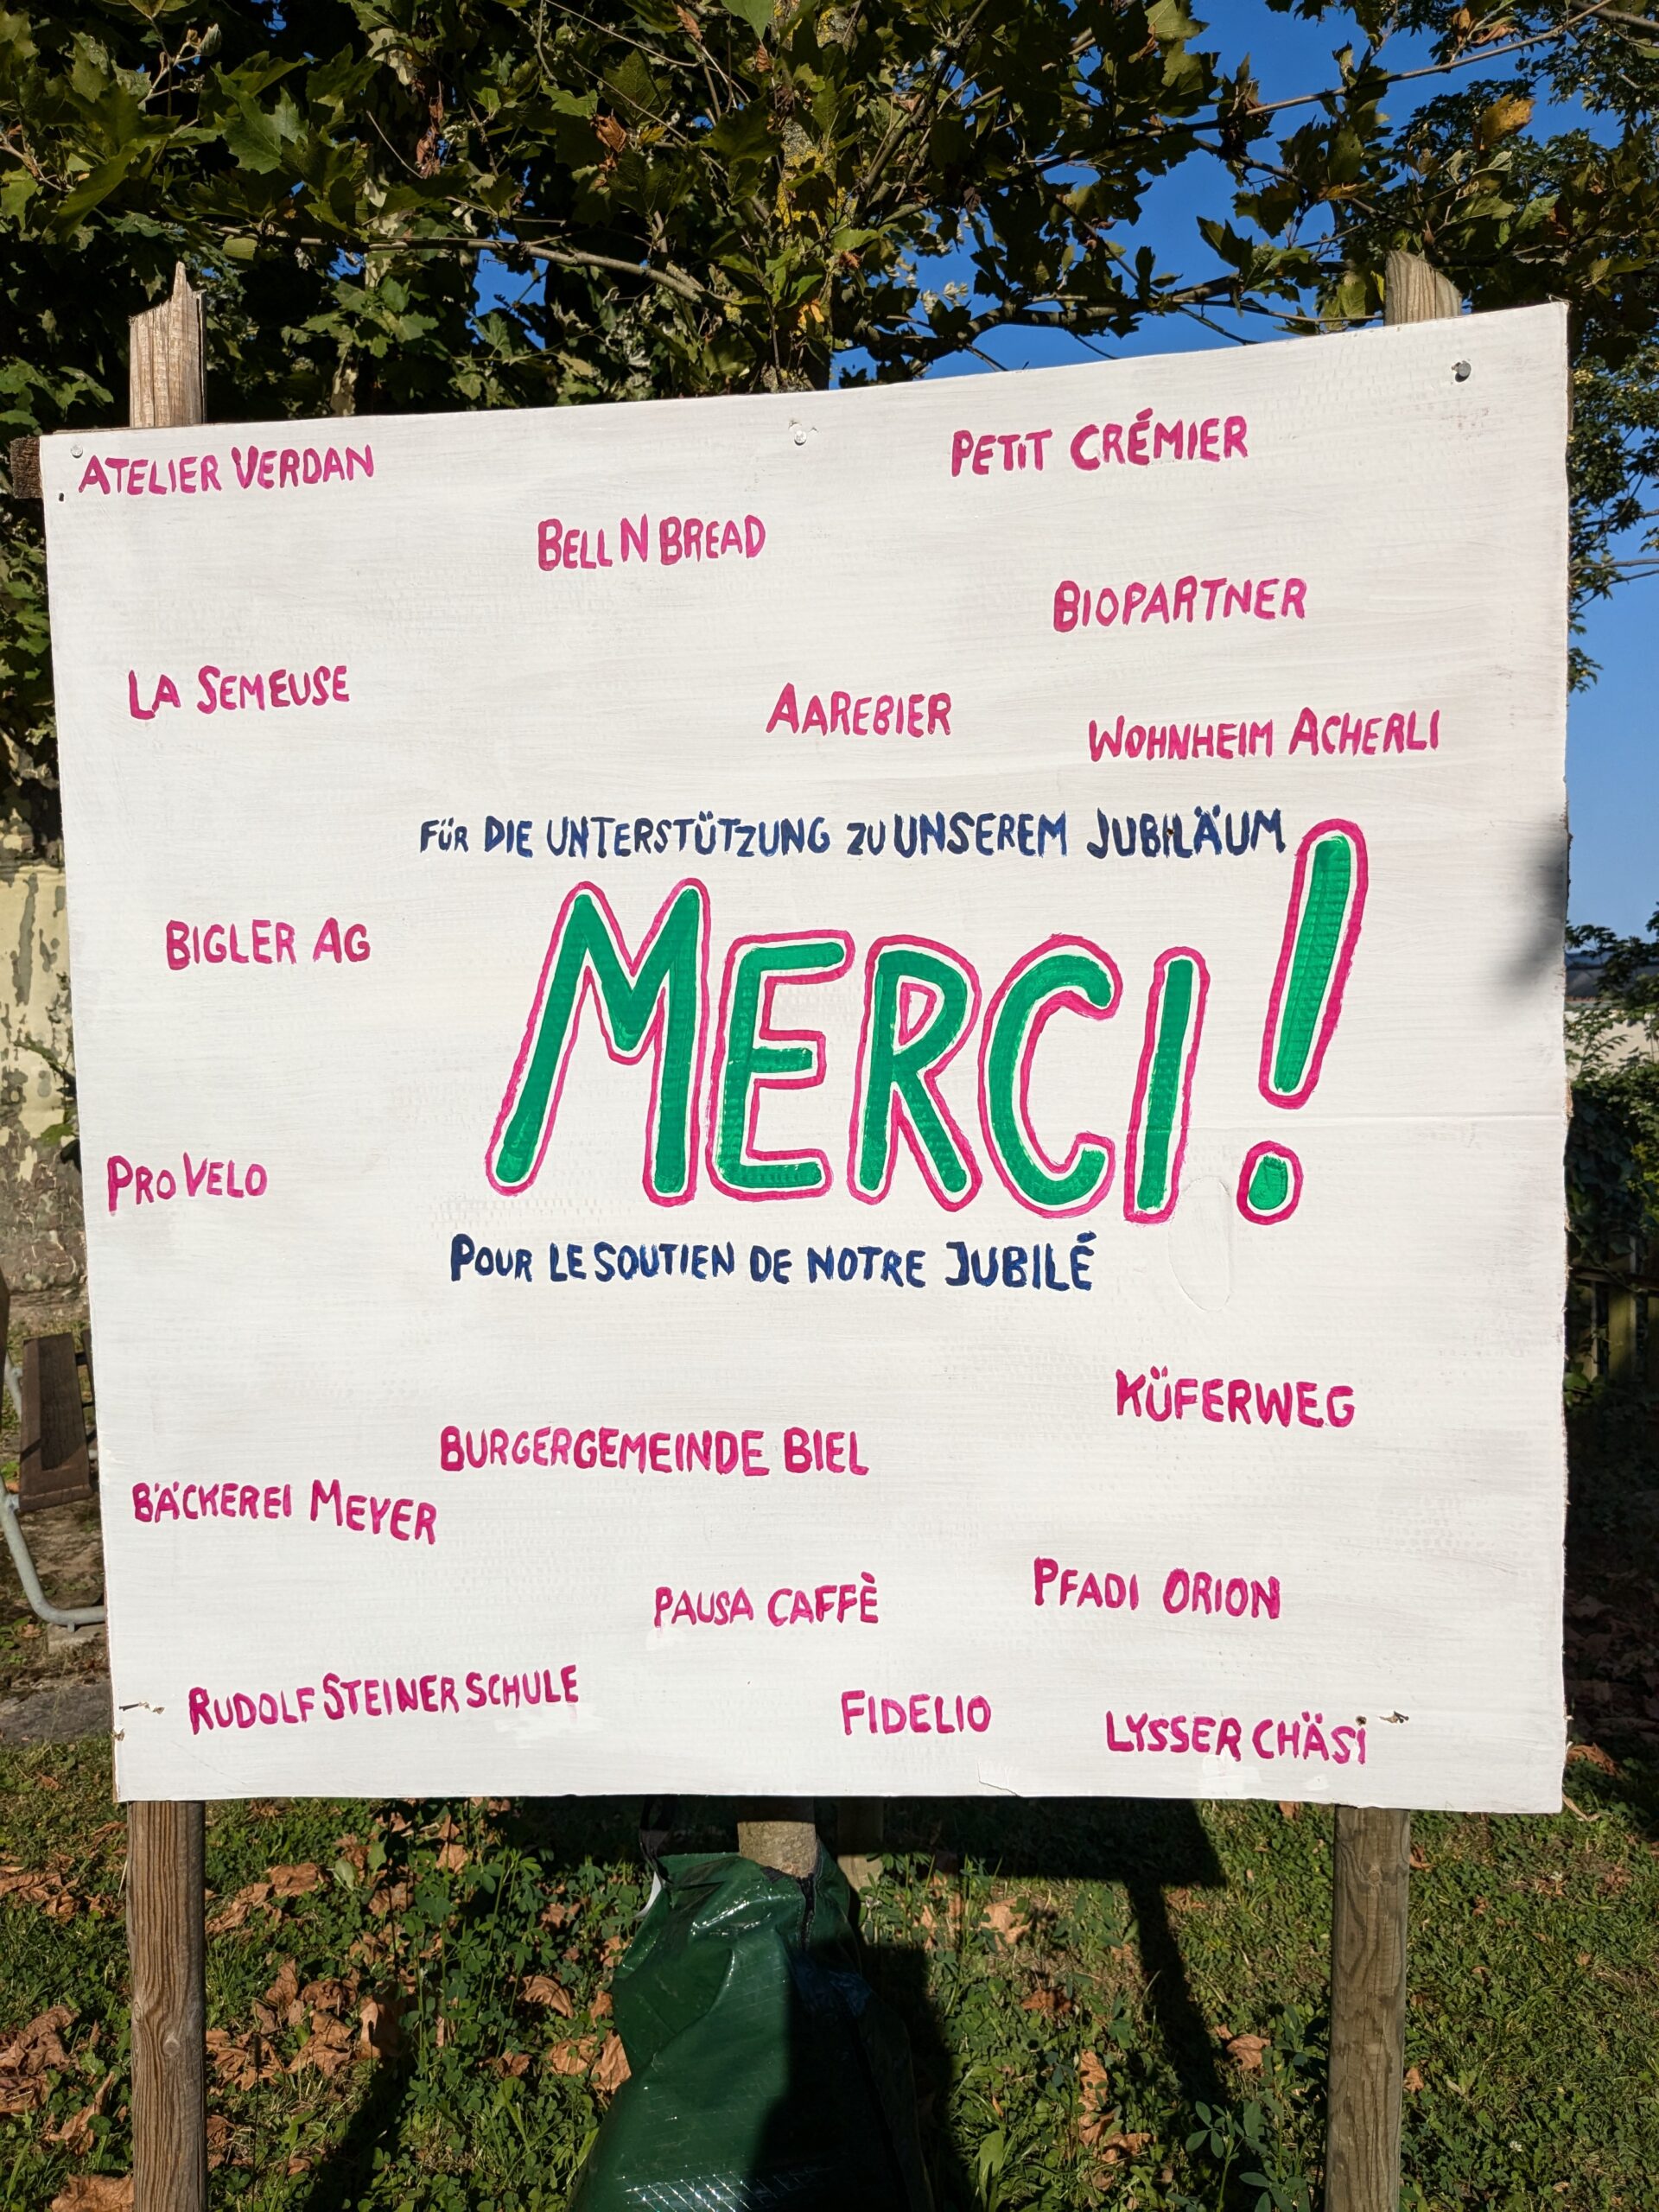 ATELIER VERDAN
PETIT CRÉMIER
BELL N BREAD
BIOPARTNER
LA SEMEUSE
AAREBIER
WOHNHEIM ACHERLI
FÜR DIE UNTERSTÜTZUNG ZU UNSEREM JUBILÄUM
MERCI!
BIGLER AG
PRO VELO
POUR LE SOUTIEN DE NOTRE JUBILÉ
KÜFERWEG
BURGERGEMEINDE BIEL
BÄCKEREI MEYER
PFADI ORION
PAUSA CAFFÈ
RUDOLF STEINER SCHULE
FIDELIO
LYSSER CHÄSI